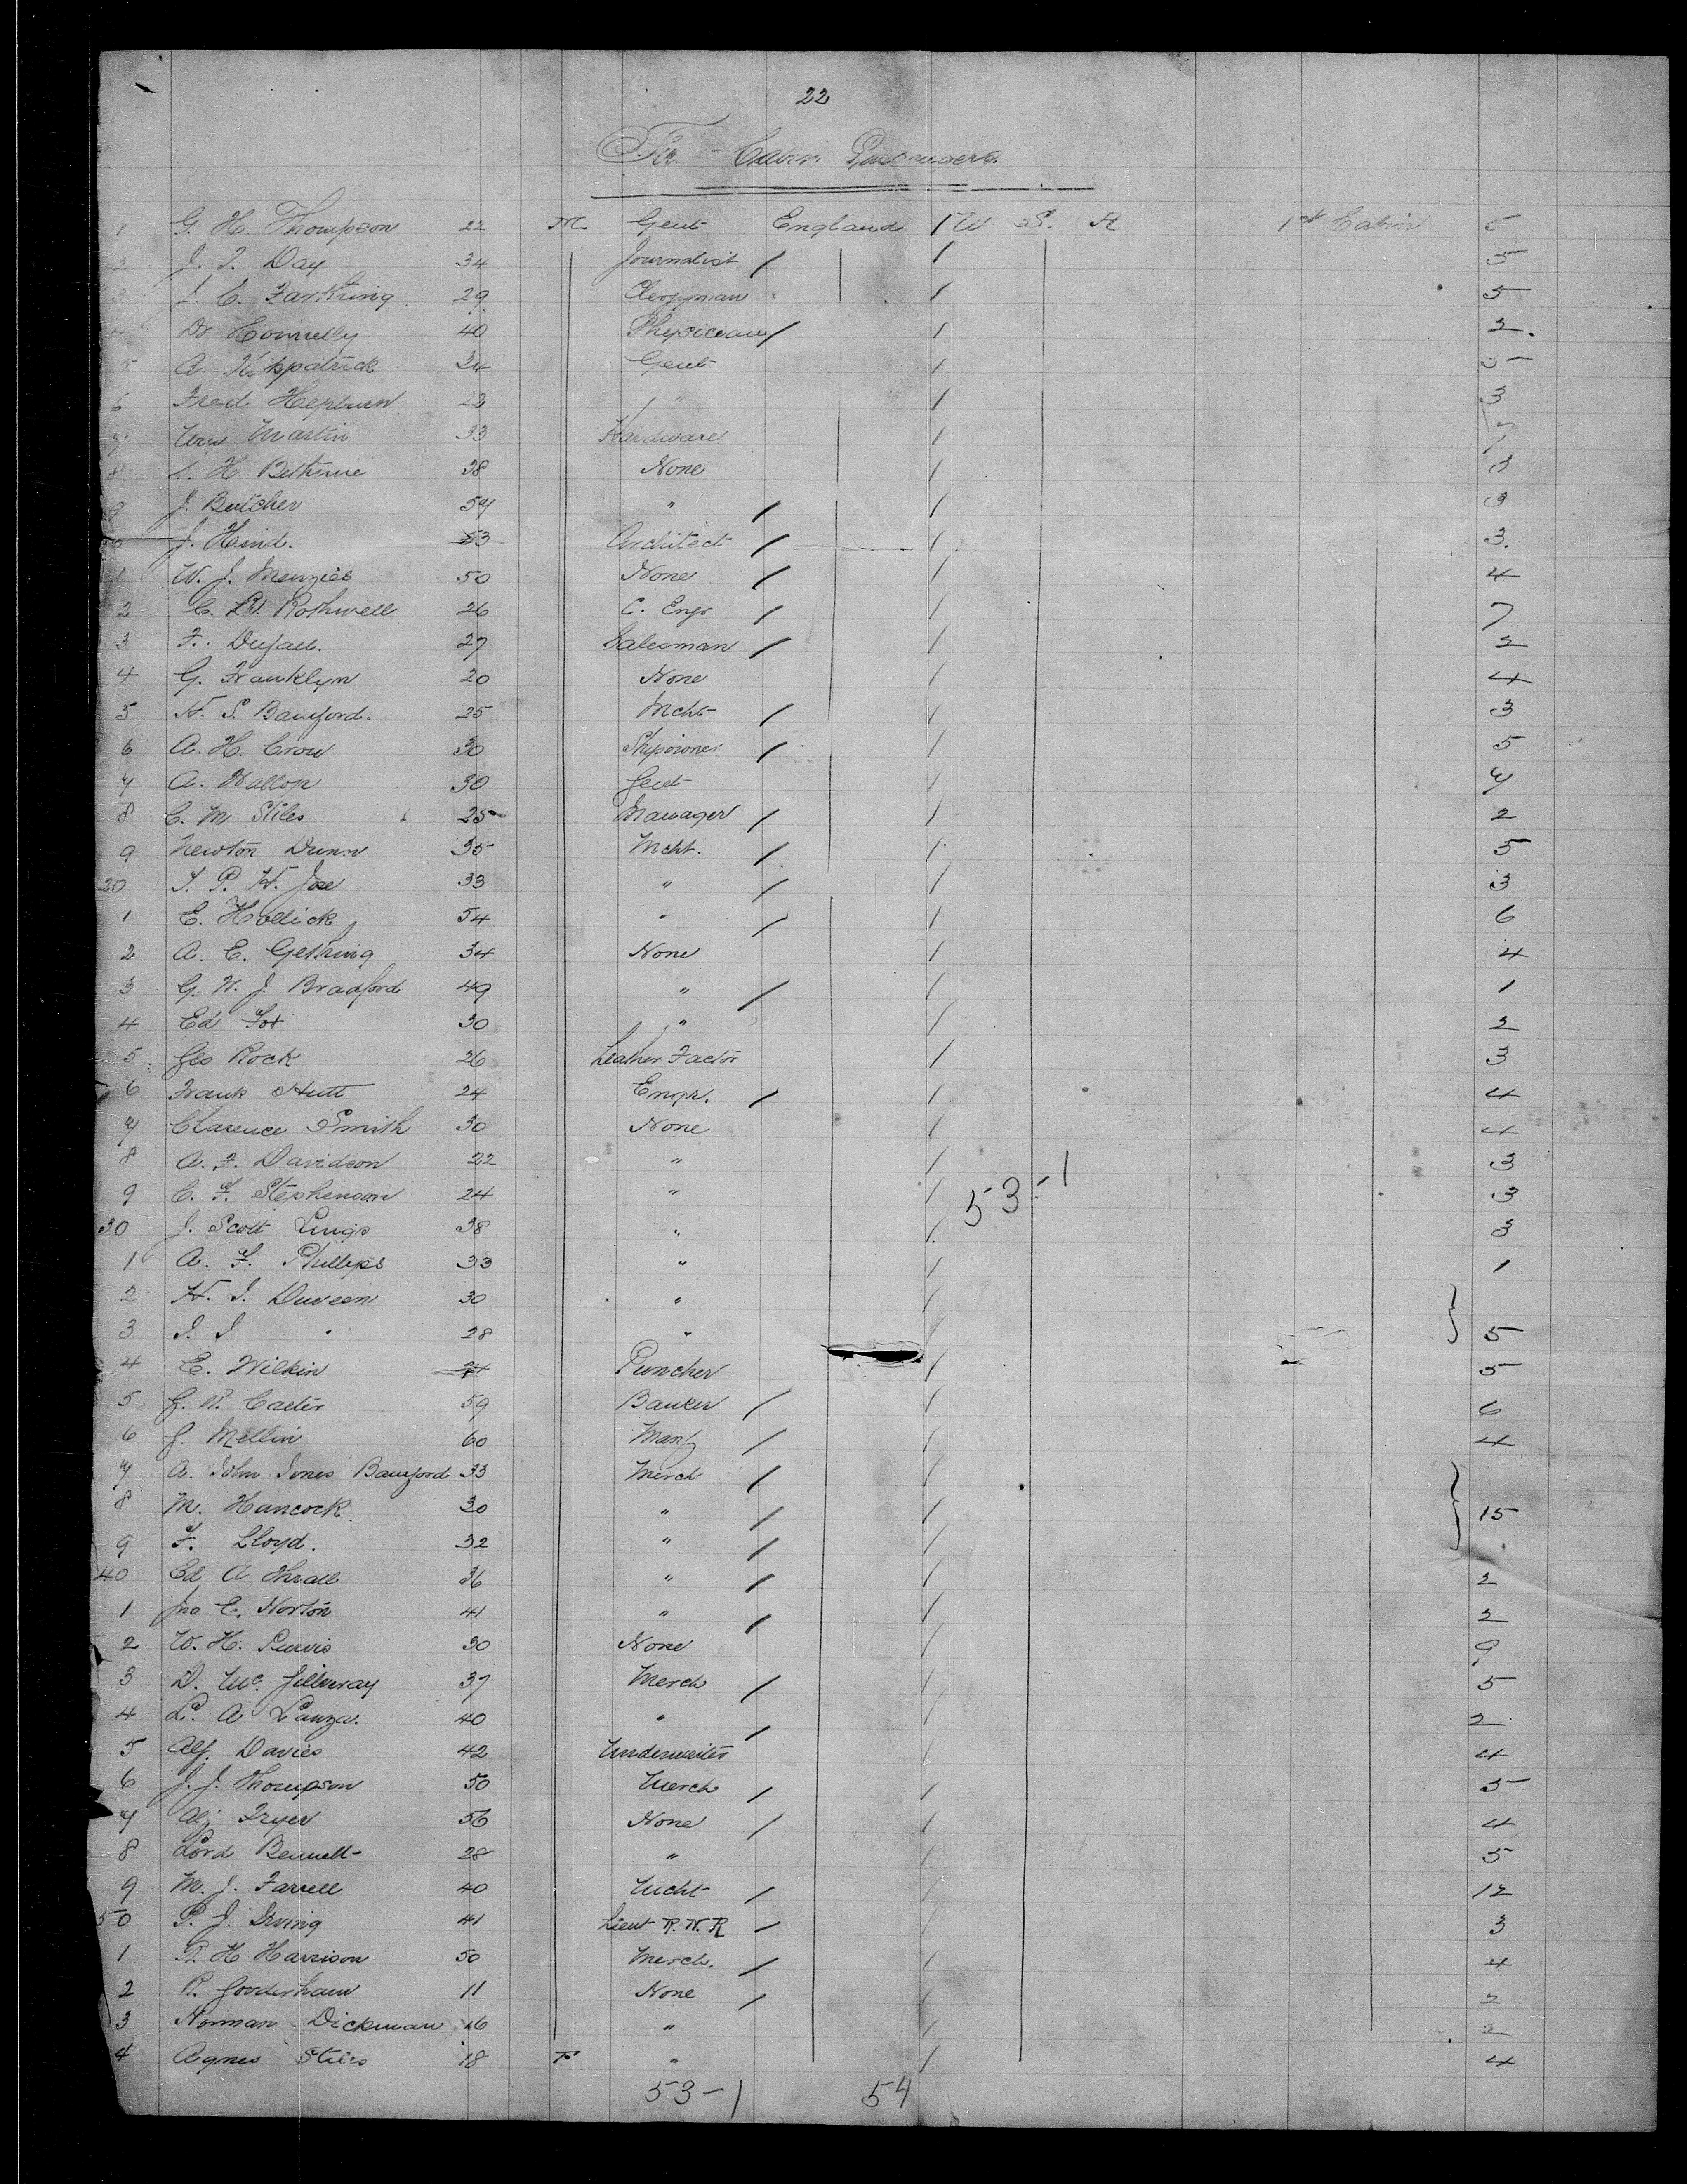 22
Cabin Passengers
1 G. H. Thompson 22 M Gent England U S. A 1st Cabin 5
2 J. T. Day 34 Journalist / 5
3 J. C. Farthing 29 Clergyman 5
Dr Connelly 40 Physician / 2.
5 A. Kirkpatrick 24 Gent 5
6 Fred Hepburn 22 " 3
7 Wm Martin 33 Hardware
8 H. Bethune 38 None 3
9 J. Butcher 57 " / 3
J. Hind. 53 Architect / 3.
1 W. J. Menzies 50 None / 4
2 C. W. Rothwell 26 C. Engr / 7
3 F. 27 Salesman / 2
4 G. Franklyn 20 None 4
5 H. S. Bamford. 25 Mcht / 3
6 A. H. Crow 30 Shipowner / 5
7 A. Wallop 30 Gent 7
8 C. M Stiles 25 Manager / 2
9 Newton Dunn 35 Mcht. / 5
20 T. P. H. Jose 33 " / 3
1 E. Hollick 54 " / 6
2 A. E. Gething 34 None 4
3 G. W. J. Bradford 49 " / 1
4 Ed Fox 30 " 2
5 Geo Rock 26 Leather Factor 3
6 Frank Hutt 24 Engr. / 4
7 Clarence Smith 30 None 4
8 A. F. Davidson 22 " 3
9 C. F. Stephenson 24 " 53-1 3
30 J. Scott Lings 38 " 3
1 A. F. Phillips 33 " 1
2 H. J. Duveen 30 "
3 J. J " 28 " } 5
4 E. Wilkin 24 Puncher 5
5 G. R. Carter 59 Banker / 6
6 G. Mellin 60 Manf / 4
7 A. John Jones Bamford 33 Merch /
8 M. Hancock 30 " / } 15
9 F. Lloyd. 32 " /
40 Ed A Thrall 36 " / 2
1 Jno E. Norton 41 " / 2
2 W. H. Purvis 30 None 9
3 D. Mc Gillivray 37 Merch / 5
4 L. A Lanza. 40 " / 2
5 Alf. Davies 42 Underwriter 4
6 J. J. Thompson 50 Merch / 5
7 Alf Fryer 56 None / 4
8 Lord Bennett 28 " 5
9 M. J. Farrell 40 Mcht / 12
50 P. J. Irving 41 Lieut R. N. R / 3
1 R. H Harrison 50 Merch. / 4
2 R. Gooderham 11 None / 2
3 Norman Dickman 16 " 2
4 Agnes Stiles 18 F " 4
53-1 54